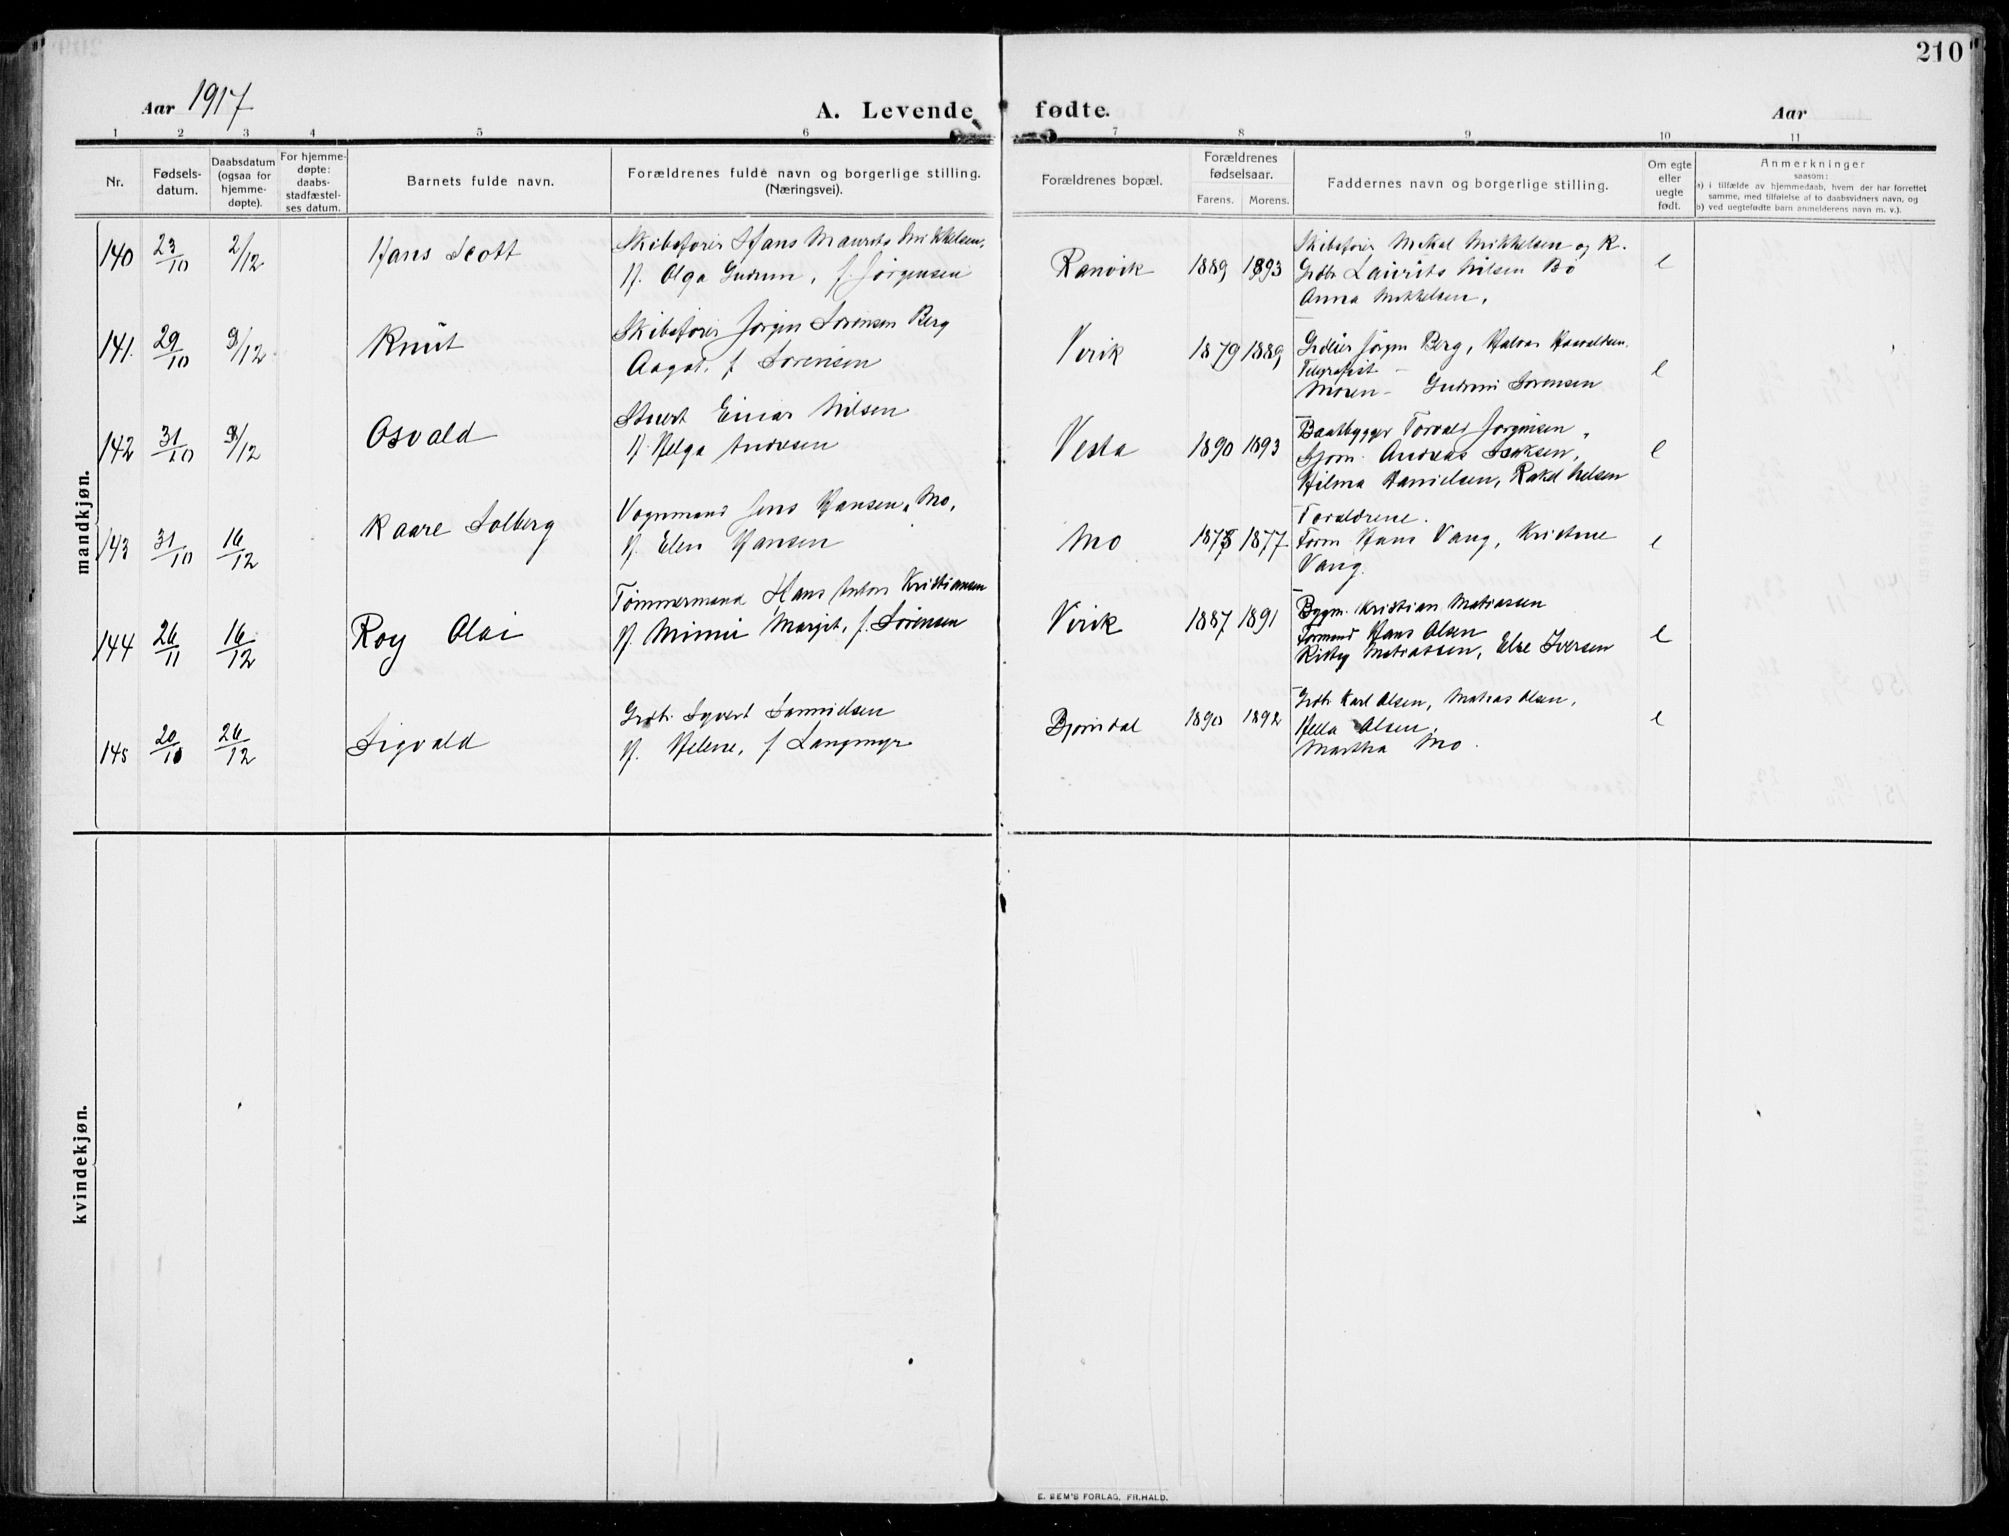 210
Aar 1917
A. Levende fødte.
Aar
1 2 3 4 5 6 7 8 9 10 11
Nr.
Fødsels-
datum.
Daabsdatum
(ogsaa for
hjemme-
døpte).
For hjemme-
døpte:
daabs-
stadfæstel-
ses datum.
Barnets fulde navn.
Forældrenes fulde navn og borgerlige stilling.
(Næringsvei).
Forældrenes bopæl.
Forældrenes
fødselsaar.
Farens. Morens.
Faddernes navn og borgerlige stilling.
Om egte
eller
uegte
født.
Anmerkninger
saasom:
a) i tilfælde av hjemmedaab, hvem der har forrettet
samme, med tilføielse af to daabsvidners navn, og
b) ved uegtefødte barn anmelderens navn m. v.).
mandkjøn.
140 23/10 2/12 Hans Scott
Skibsfører Hans Maurits Mikkelsen,
H. Olga Gudrun, f. Jørgensen
Ranvik 1889 1893
Skibsfører Mikal Mikkelsen og K.
Grdbr Laurits Nilsen Bø
Anna Mikkelsen,
e
141. 29/10 9/12 Knut
Skibsfører Jørgen Sørensen Berg
Aagot, f. Sørensen
Virik 1879 1889
Jørgen Berg, Halvor
Telegrafist
Moren - Gudrun Sørensen
e
142 31/10 9/12 Osvald
Stuert Einar Nilsen
H. Helga Andresen
Vesta 1890 1893
Baatbygger Torvald Jørgensen,
Sjøm. Andreas Isaksen,
Hilma Danielsen, Rakel Nilsen
e
143 31/10 16/12 Kaare Solberg
Vognmand Jens Hansen, Mo,
H. Elen Hansen
Mo 1878 1877
Forældrene.
Form Hans Vang, Kristine
Vang.
e
144 26/11 16/12 Roy Olai
Tømmermand Hans Anton Kristiansen
H. Minni Margit, f. Sørensen
Virik 1887 1891
Bygm. Kristian Matiassen
Formand Hans Olsen
Matiassen, Else Iversen
e
145 20/10 26/12 Sigvald
Grdbr. Syvert Samuelsen
H. Helene, f. Langmyr
Bjørndal 1890 1892
Grdbr Karl Olsen, Matias Olsen,
Hella Olsen,
Martha Mo.
e
kvindekjøn.
E. SEM'S FORLAG, FR.HALD.